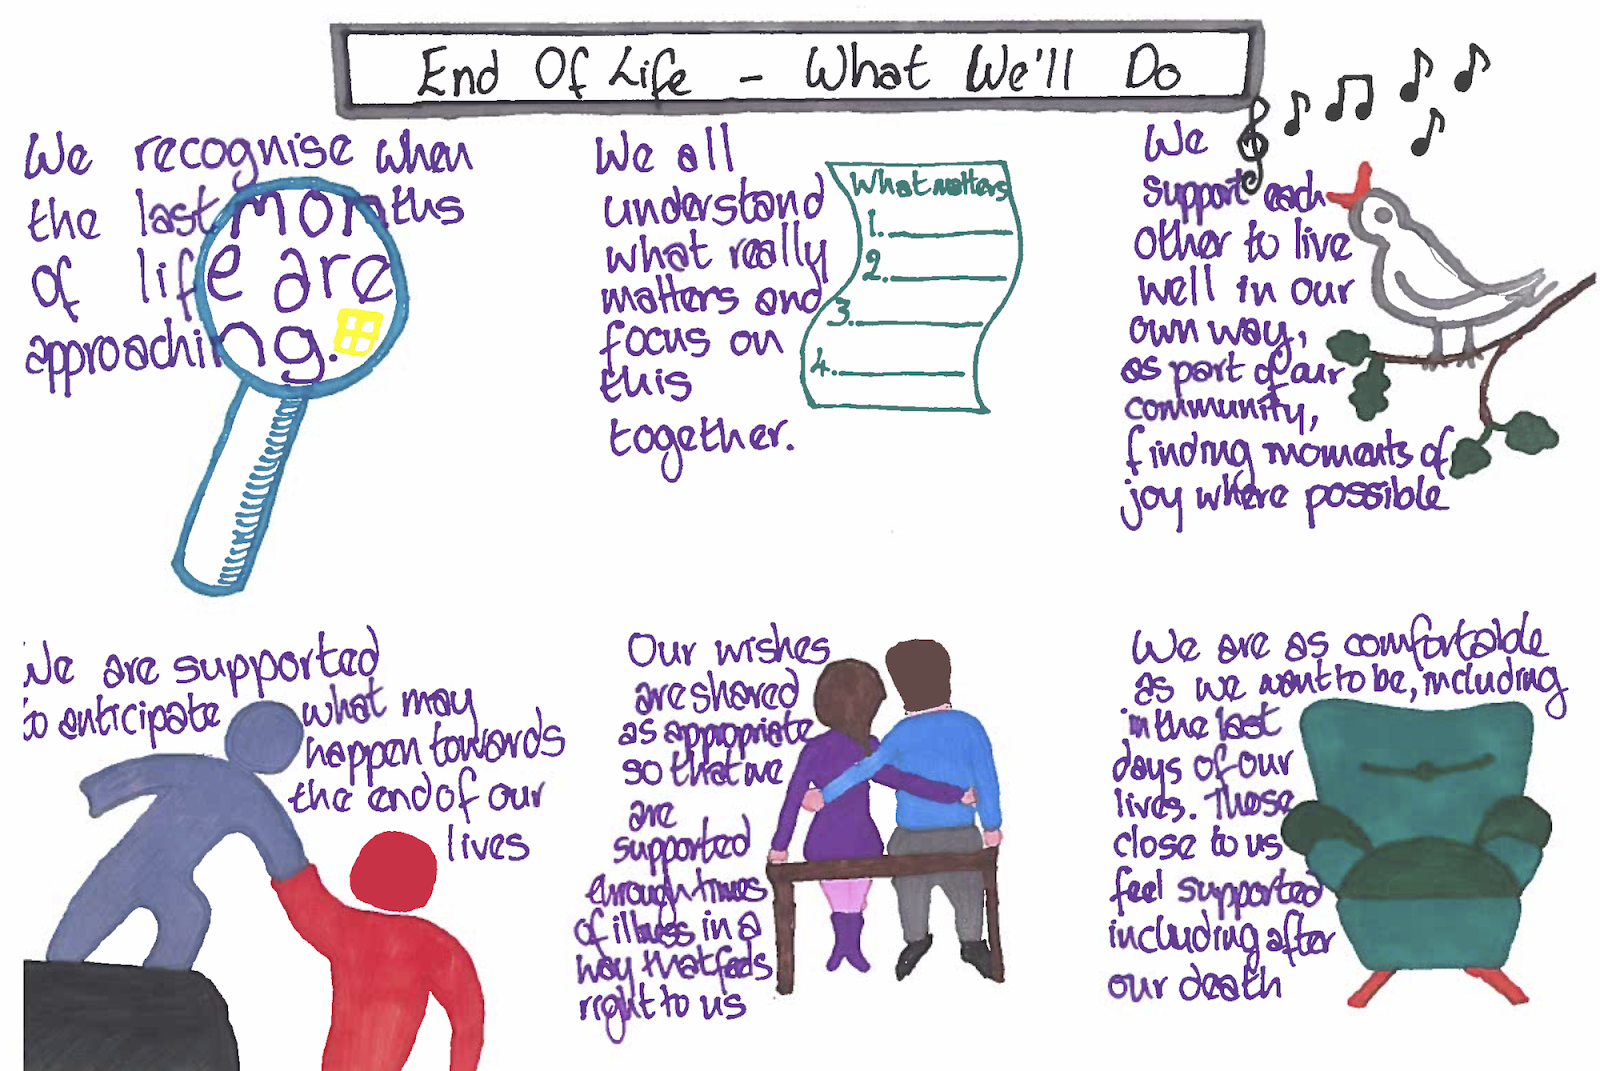 End Of Life - What We'll Do
We recognise when
the last months
of life are
approaching.
We all
understand
what really
matters and
focus on
this
together.
What matters
1.
2.
3.
4.
We
support each
other to live
well in our
own way,
as part of our
community,
finding moments of
joy where possible
We are supported
to anticipate what may
happen towards
the end of our
lives
Our wishes
are shared
as appropriate
so that we
are
supported
through times
of illness in a
way that feels
right to us
We are as comfortable
as we want to be, including
in the last
days of our
lives. Those
close to us
feel supported
including after
our death